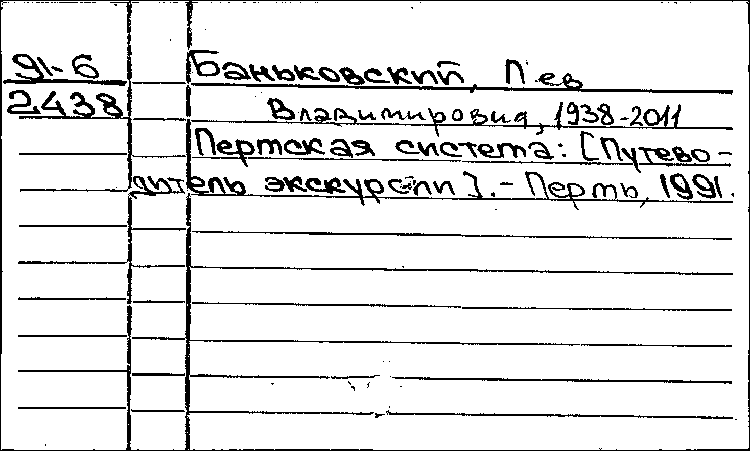 91-6 Баньковский, Лев
2438 Владимирович, 1938-2011
Пермская система: [Путево-
дитель экскурсии]. - Пермь, 1991.